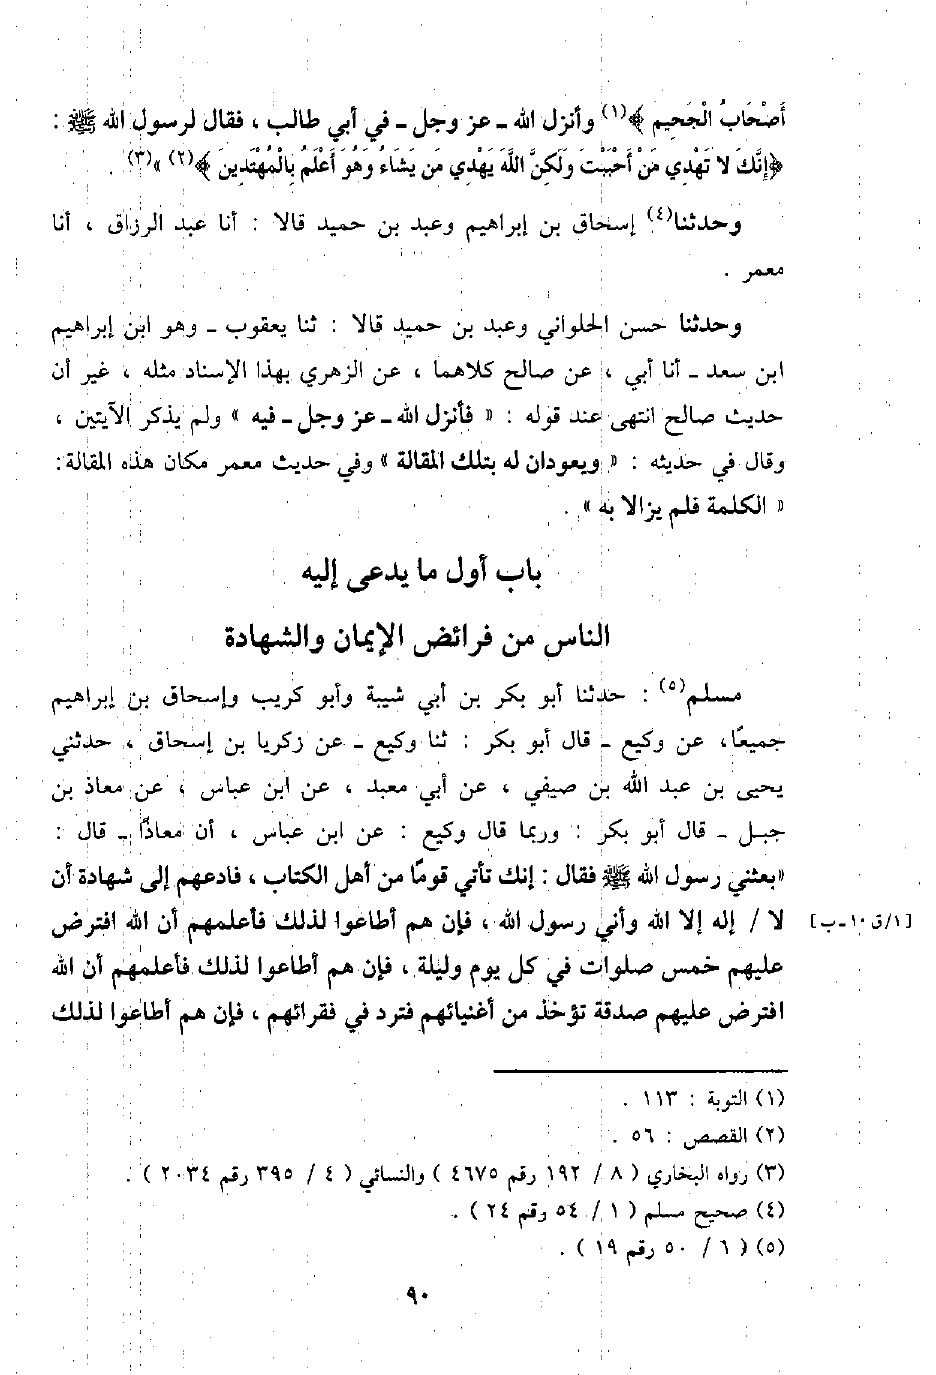 أَصْحَابُ الْجَحِيمِ ﴾(١) وأنزل الله ـ عز وجل ـ في أبي طالب ، فقال لرسول الله ﷺ :
﴿إِنَّكَ لا تَهْدِي مَنْ أَحْبَبْتَ وَلَكِنَّ اللَّهَ يَهْدِي مَن يَشَاءُ وَهُوَ أَعْلَمُ بِالْمُهْتَدِينَ ﴾(٢) »(٣) .
وحدثنا(٤) إسحاق بن إبراهيم وعبد بن حميد قالا : أنا عبد الرزاق ، أنا
معمر .
وحدثنا حسن الحلواني وعبد بن حميد قالا : ثنا يعقوب ـ وهو ابن إبراهيم
ابن سعد ـ أنا أبي ، عن صالح كلاهما ، عن الزهري بهذا الإسناد مثله ، غير أن
حديث صالح انتهى عند قوله : « فأنزل الله ـ عز وجل ـ فيه » ولم يذكر الآيتين ،
وقال في حديثه : « ويعودان له بتلك المقالة » وفي حديث معمر مكان هذه المقالة :
« الكلمة فلم يزالا به » .
باب أول ما يدعى إليه
الناس من فرائض الإيمان والشهادة
مسلم(٥) : حدثنا أبو بكر بن أبي شيبة وأبو كريب وإسحاق بن إبراهيم
جميعًا، عن وكيع ـ قال أبو بكر : ثنا وكيع ـ عن زكريا بن إسحاق ، حدثني
يحيى بن عبد الله بن صيفي ، عن أبي معبد ، عن ابن عباس ، عن معاذ بن
جبل ـ قال أبو بكر : وربما قال وكيع : عن ابن عباس ، أن معاذًا ـ قال :
«بعثني رسول الله ﷺ فقال : إنك تأتي قومًا من أهل الكتاب ، فادعهم إلى شهادة أن
لا / إله إلا الله وأني رسول الله ، فإن هم أطاعوا لذلك فأعلمهم أن الله افترض [١/ق ١٠-ب]
عليهم خمس صلوات في كل يوم وليلة ، فإن هم أطاعوا لذلك فأعلمهم أن الله
افترض عليهم صدقة تؤخذ من أغنيائهم فترد في فقرائهم ، فإن هم أطاعوا لذلك
(١) التوبة : ١١٣ .
(٢) القصص : ٥٦ .
(٣) رواه البخاري ( ٨ / ١٩٢ رقم ٤٦٧٥ ) والنسائي ( ٤ / ٣٩٥ رقم ٢٠٣٤ ) .
(٤) صحيح مسلم ( ١ / ٥٤ رقم ٢٤ ) .
(٥) ( ٦ / ٥٠ رقم ١٩ ) .
٩٠